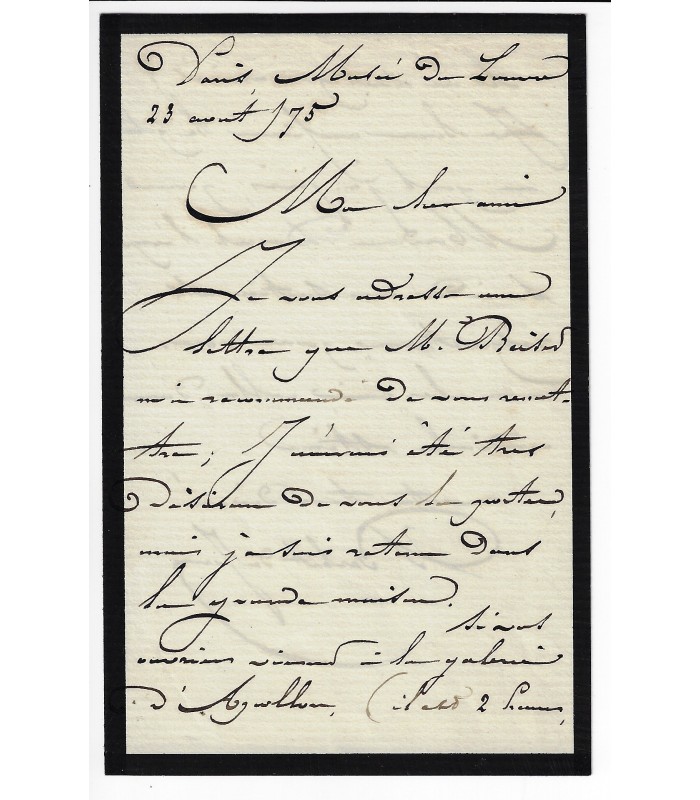 Paris, Musée du Louvre
23 aout /75
Mon cher ami
Je vous adresse une
lettre que Mr Reiset
m'a recommandé de vous remet-
tre; J'aurais été tres
désireux de vous la porter,
mais je suis retenu dans
la grande maison.
si vous
ouvriers à la galerie
d'Apollon, (il est 2 heures,